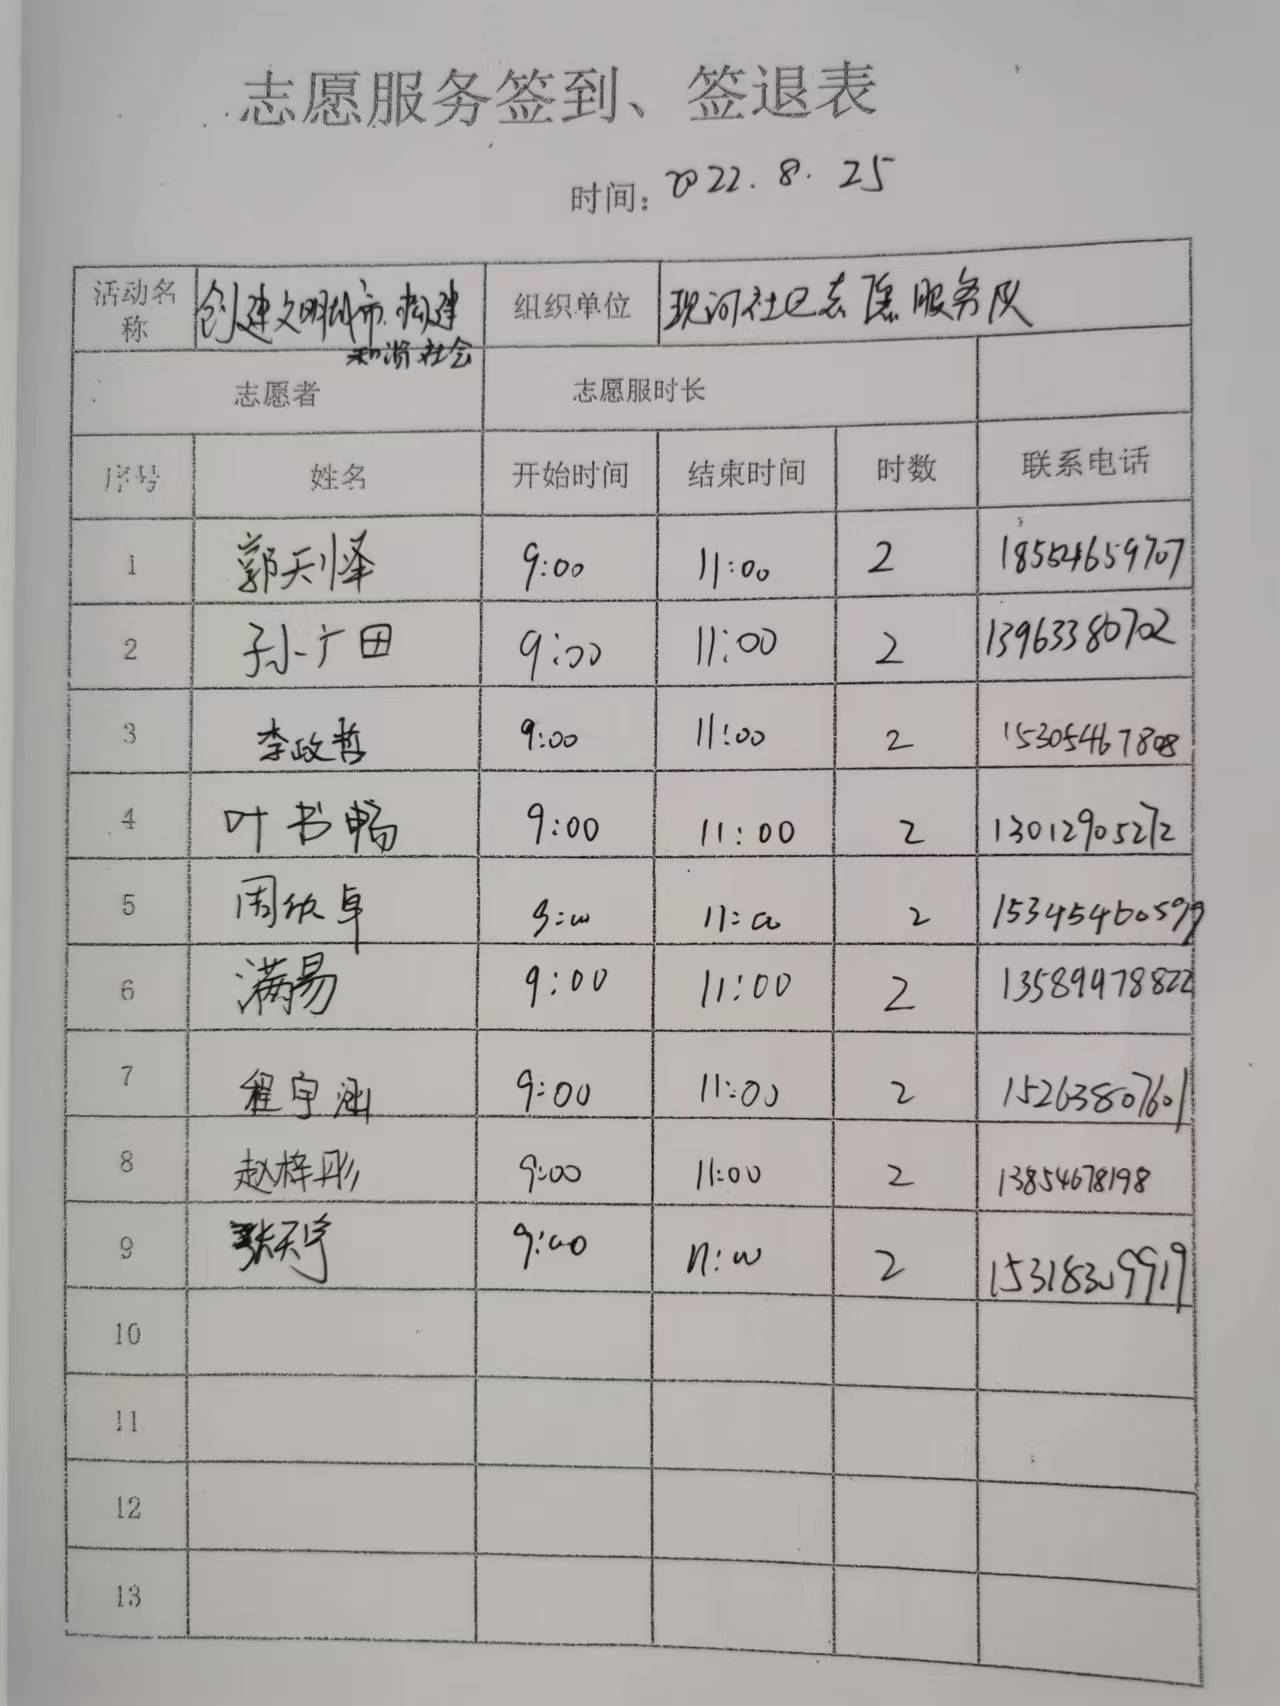 志愿服务签到、签退表
时间: 2022.8.25
活动名称 创建文明城市.构建和谐社会 组织单位 现河社区志愿服务队
志愿者 志愿服时长
序号 姓名 开始时间 结束时间 时数 联系电话
1 郭天怿 9:00 11:00 2 18554659707
2 孙广田 9:00 11:00 2 13963380702
3 李政哲 9:00 11:00 2 15305467808
4 叶书畅 9:00 11:00 2 13012905272
5 周欣卓 9:00 11:00 2 15345460599
6 满易 9:00 11:00 2 13589978822
7 程宇涵 9:00 11:00 2 15263807601
8 赵梓彤 9:00 11:00 2 13854678198
9 张天宇 9:00 11:00 2
10
11
12
13